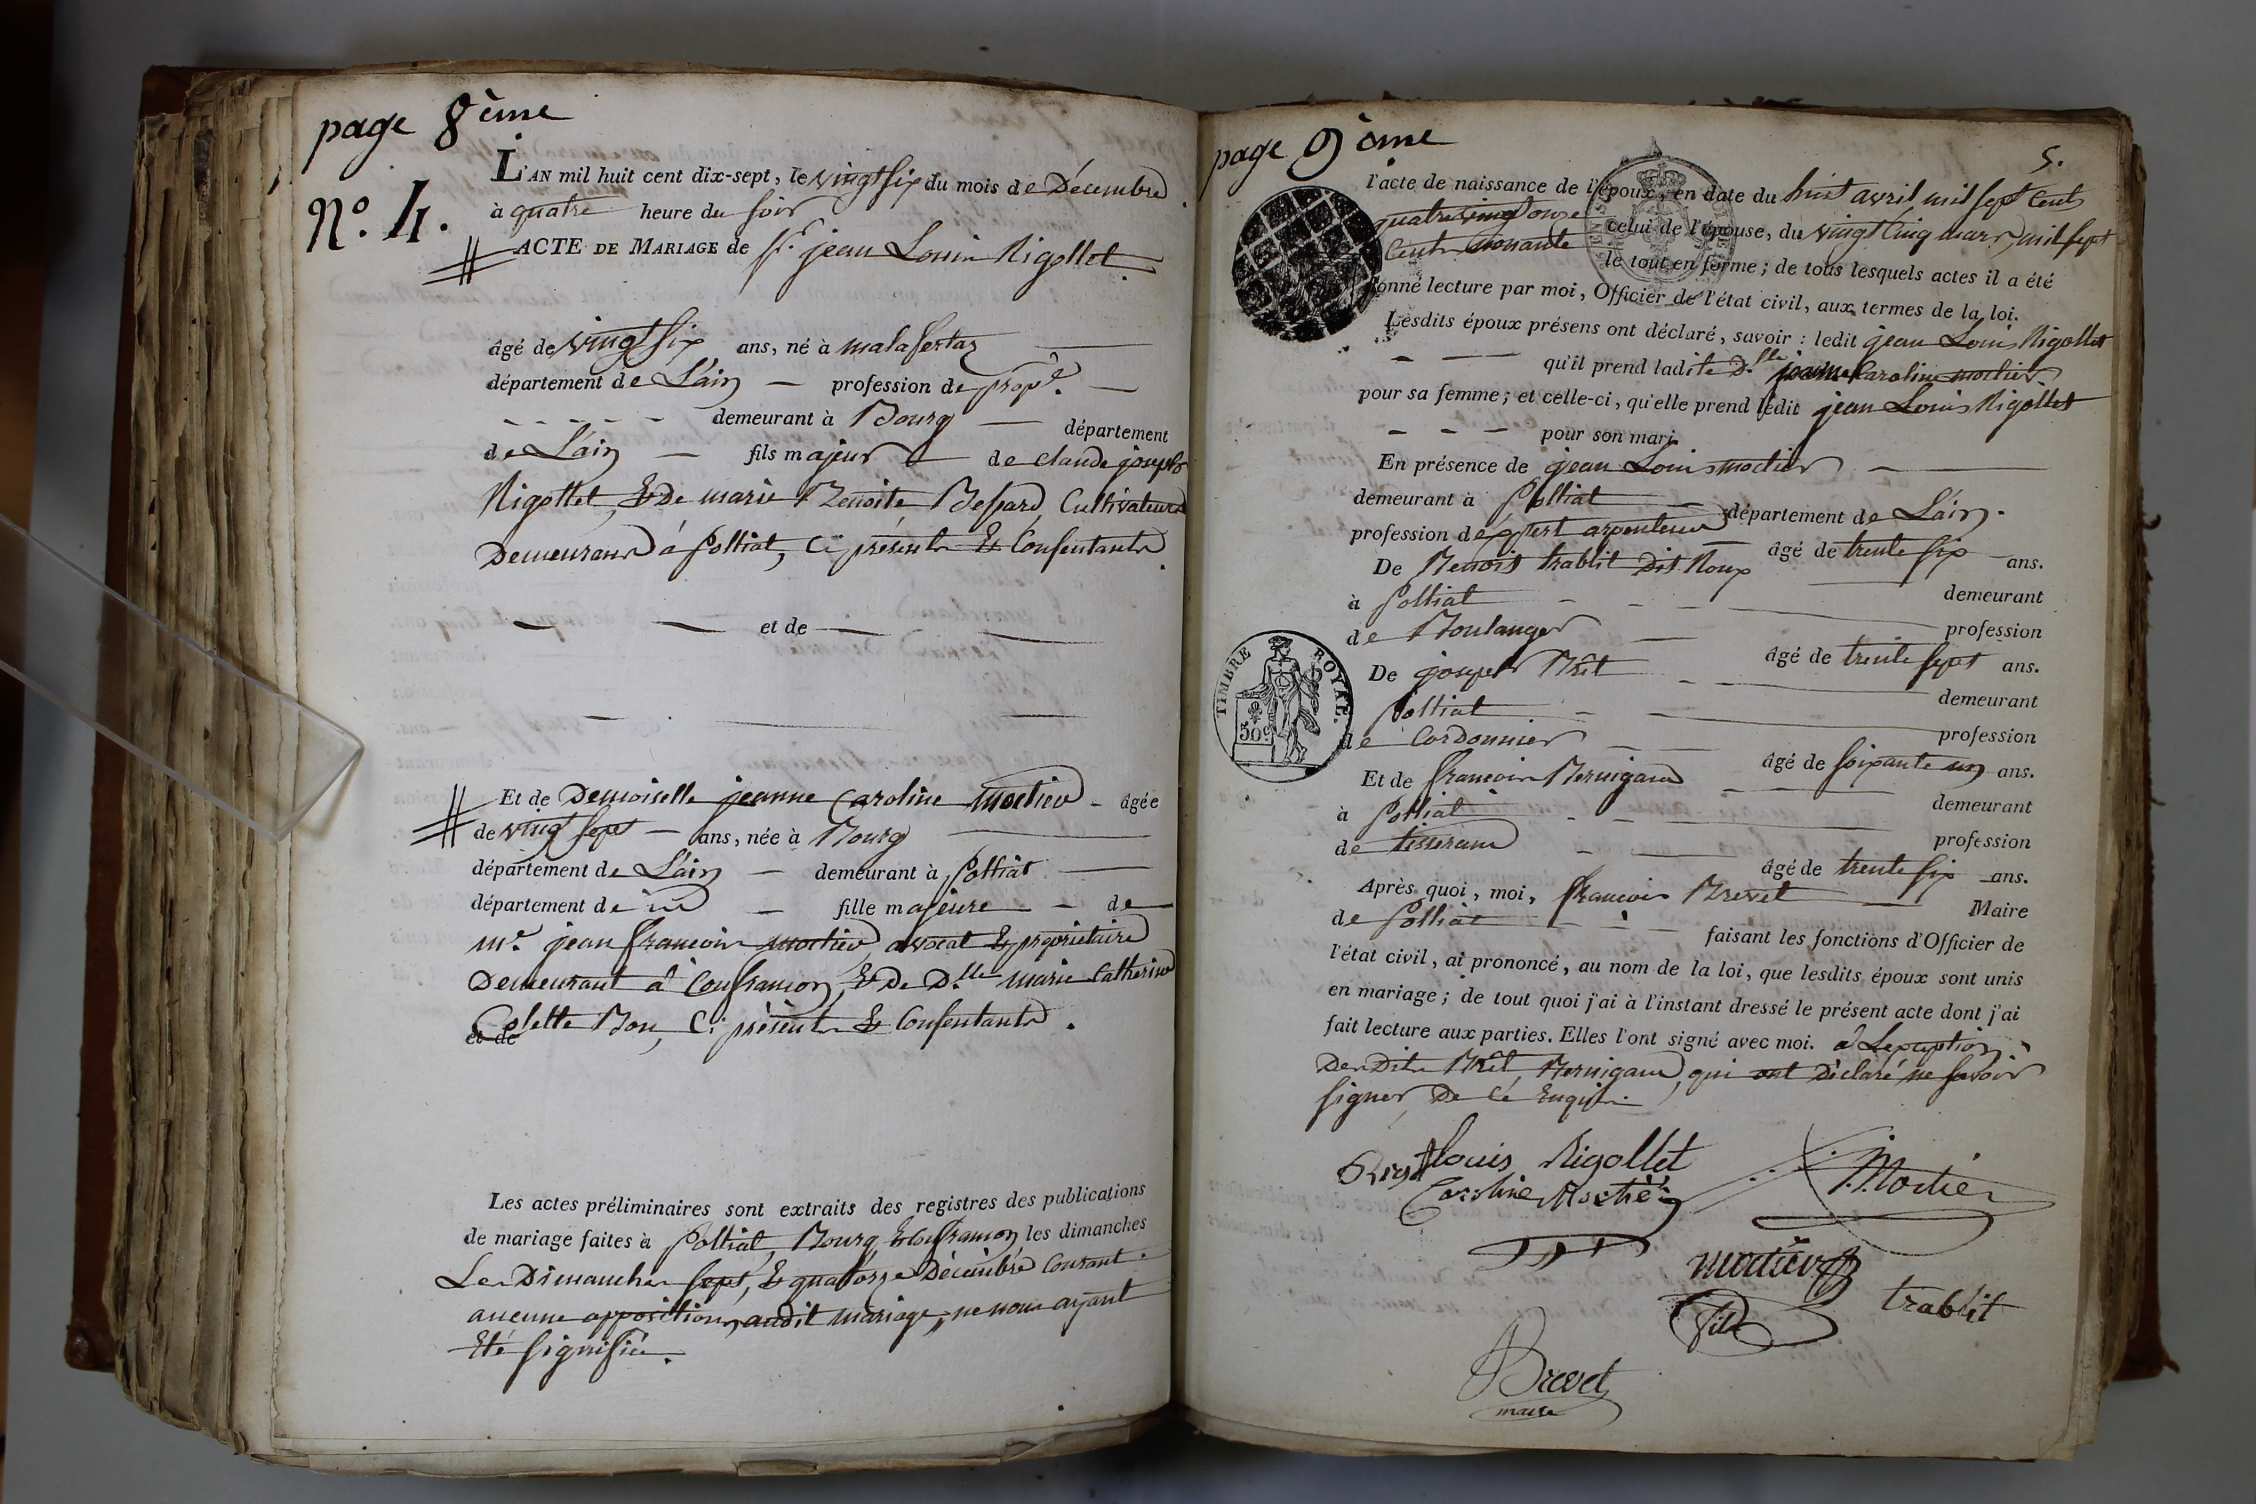 page 8ème
N.º 4.
L'AN mil huit cent dix-sept, le vingt six du mois de Décembre
à quatre heure du soir
ACTE DE MARIAGE de Sr. jean Louis Rigollet.
âgé de vingt six ans, né à malafertaz
département de L'ain — profession de propre. —
demeurant à Bourg — département
de L'ain — fils majeur — de claude joseph
Rigollet, & De marie Benoite Bessard, Cultivateurs
Demeurans à polliat, Ci présents & Consentants.
et de
Et de Demoiselle jeanne Caroline moctier - âgée
de vingt sept — ans, née à Bourg
département de L'ain — demeurant à polliat —
département de id — fille majeure — de
mr. jean francois moctier, avocat & propriétaire
Demeurant à Confrançon, & De D.lle marie Catherine
Colette Bon, Ci présents & Consentants.
et de
Les actes préliminaires sont extraits des registres des publications
de mariage faites à polliat, Bourg & Confrançon les dimanches
Les Dimanches sept, & quatorze Décembre Courant.
aucune opposition, audit mariage, ne nous ayant
Eté signifiée.
page 9ème
5.
l'acte de naissance de l'époux, en date du huit avril mil sept Cent
quatre vingt onze celui de l'épouse, du vingt Cinq mars, mil sept
Cent nonante le tout en forme; de tous lesquels actes il a été
donné lecture par moi, Officier de l'état civil, aux termes de la loi.
Lesdits époux présens ont déclaré, savoir: ledit jean Louis Rigollet
— — qu'il prend ladite D.lle jeanne Caroline moctier
pour sa femme; et celle-ci, qu'elle prend ledit jean Louis Rigollet
— — — pour son mari.
En présence de jean Louis moctier —
demeurant à polliat — département de L'ain.
profession d'expert arpenteur — âgé de trente six ans.
De Benoit trablit Dit Roux demeurant
à polliat — profession
de Boulanger — âgé de trente sept ans.
De joseph Brêt — demeurant
polliat — profession
de Cordonnier — âgé de soixante un ans.
Et de francois Bernigaud — demeurant
à polliat — profession
de tisserand — âgé de trente six ans.
Après quoi, moi, francois Brevet — Maire
de polliat — faisant les fonctions d'Officier de
l'état civil, ai prononcé, au nom de la loi, que lesdits époux sont unis
en mariage; de tout quoi j'ai à l'instant dressé le présent acte dont j'ai
fait lecture aux parties. Elles l'ont signé avec moi. à L'exception
Des Dits Brêt, Bernigaud, qui ont Déclaré ne savoir
signer, De Ce Enquis.
louis Rigollet
Caroline Moctier
J. Moctier
moctier
fils
trablit
Brevet
maire
TIMBRE ROYAL.
50c